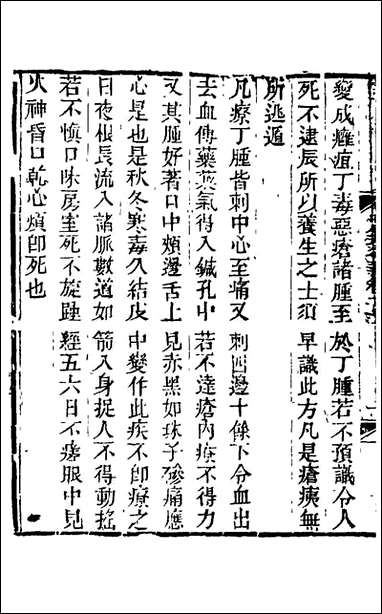 變成癰疽丁毒惡瘡諸腫至於丁腫若不預識令人
死不逮辰所以養生之士須早識此方凡是瘡痍無
所逃遁
凡療丁腫皆刺中心至痛又刺四邊十餘下令血出
去血傅藥藥氣得入鍼孔中若不達瘡內療不得力
又其腫好著口中頰邊舌上見赤黑如珠子磣痛應
心是也是秋冬寒毒久結皮中變作此疾不即療之
日夜根長流入諸脈數道如箭入身捉人不得動搖
若不慎口味房室死不旋踵經五六日不瘥眼中見
火神昏口乾心煩即死也